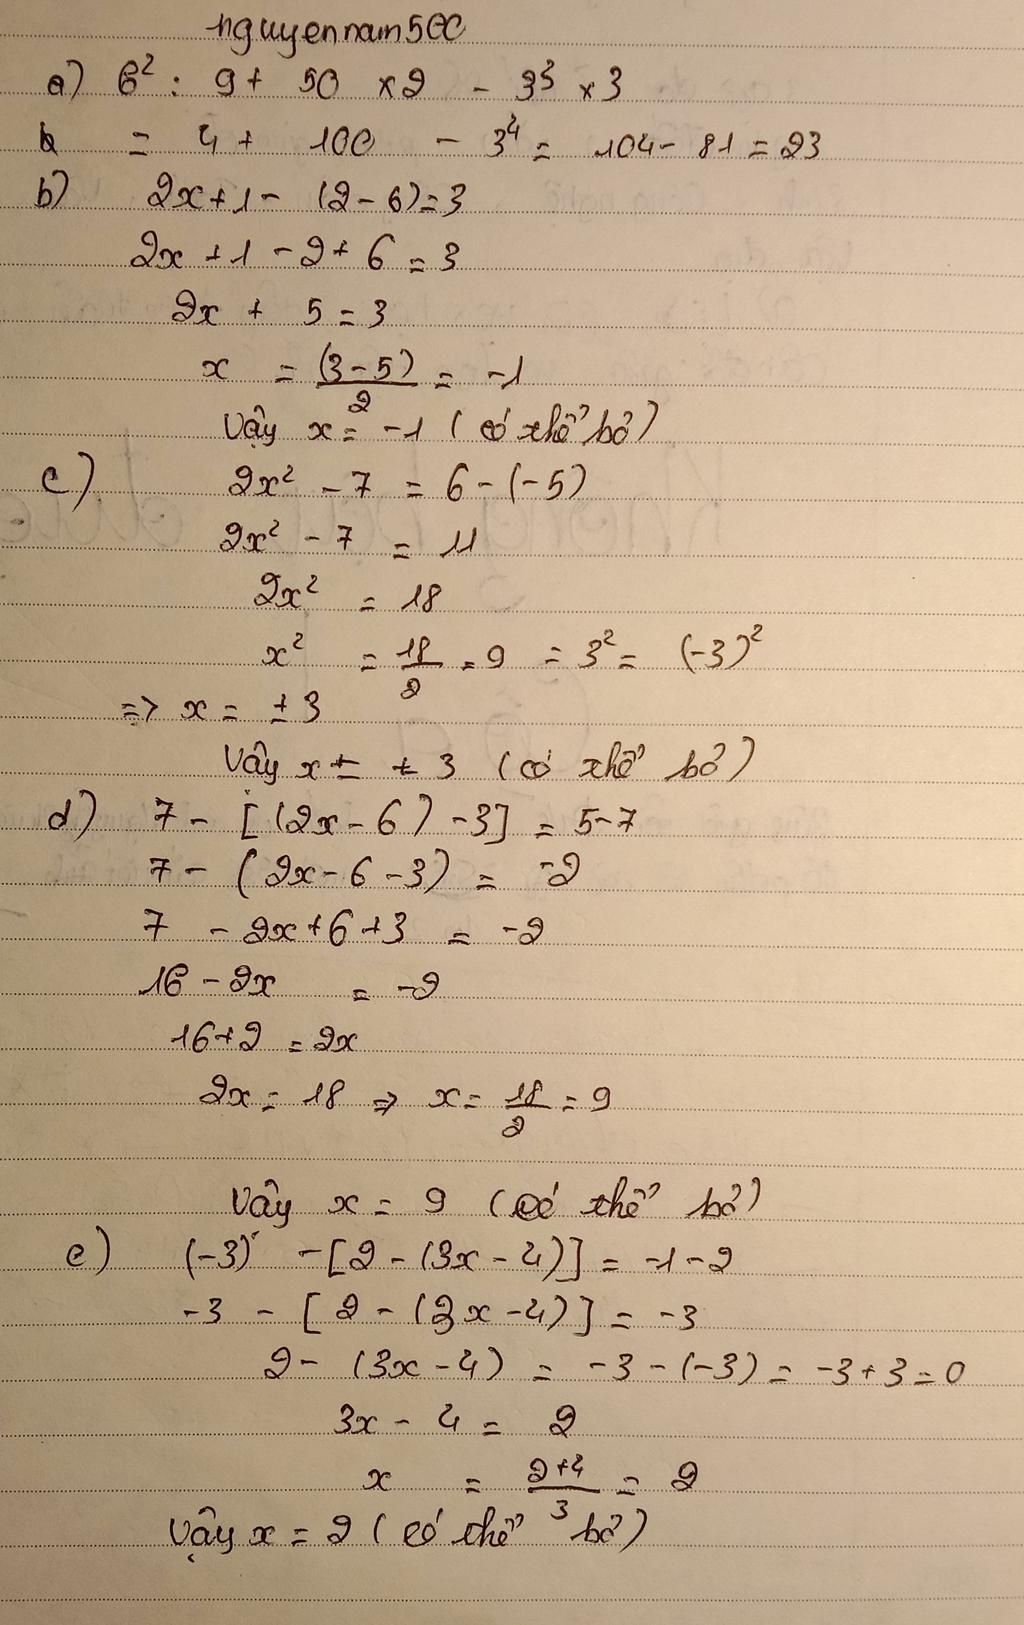 nguyennam500
a) 6² : 9 + 50 × 2 - 3³ × 3
= 4 + 100 - 3⁴ = 104 - 81 = 23
b) 2x + 1 - (2 - 6) = 3
2x + 1 - 2 + 6 = 3
2x + 5 = 3
x = (3 - 5)/2 = -1
Vậy x = -1 (có thể bỏ)
c) 2x² - 7 = 6 - (-5)
2x² - 7 = 11
2x² = 18
x² = 18/2 = 9 = 3² = (-3)²
=> x = ±3
Vậy x = ±3 (có thể bỏ)
d) 7 - [(2x - 6) - 3] = 5 - 7
7 - (2x - 6 - 3) = -2
7 - 2x + 6 + 3 = -2
16 - 2x = -2
16 + 2 = 2x
2x = 18 => x = 18/2 = 9
Vậy x = 9 (có thể bỏ)
e) (-3) - [2 - (3x - 4)] = -1 - 2
-3 - [2 - (3x - 4)] = -3
2 - (3x - 4) = -3 - (-3) = -3 + 3 = 0
3x - 4 = 2
x = (2 + 4)/3 = 2
Vậy x = 2 (có thể bỏ)